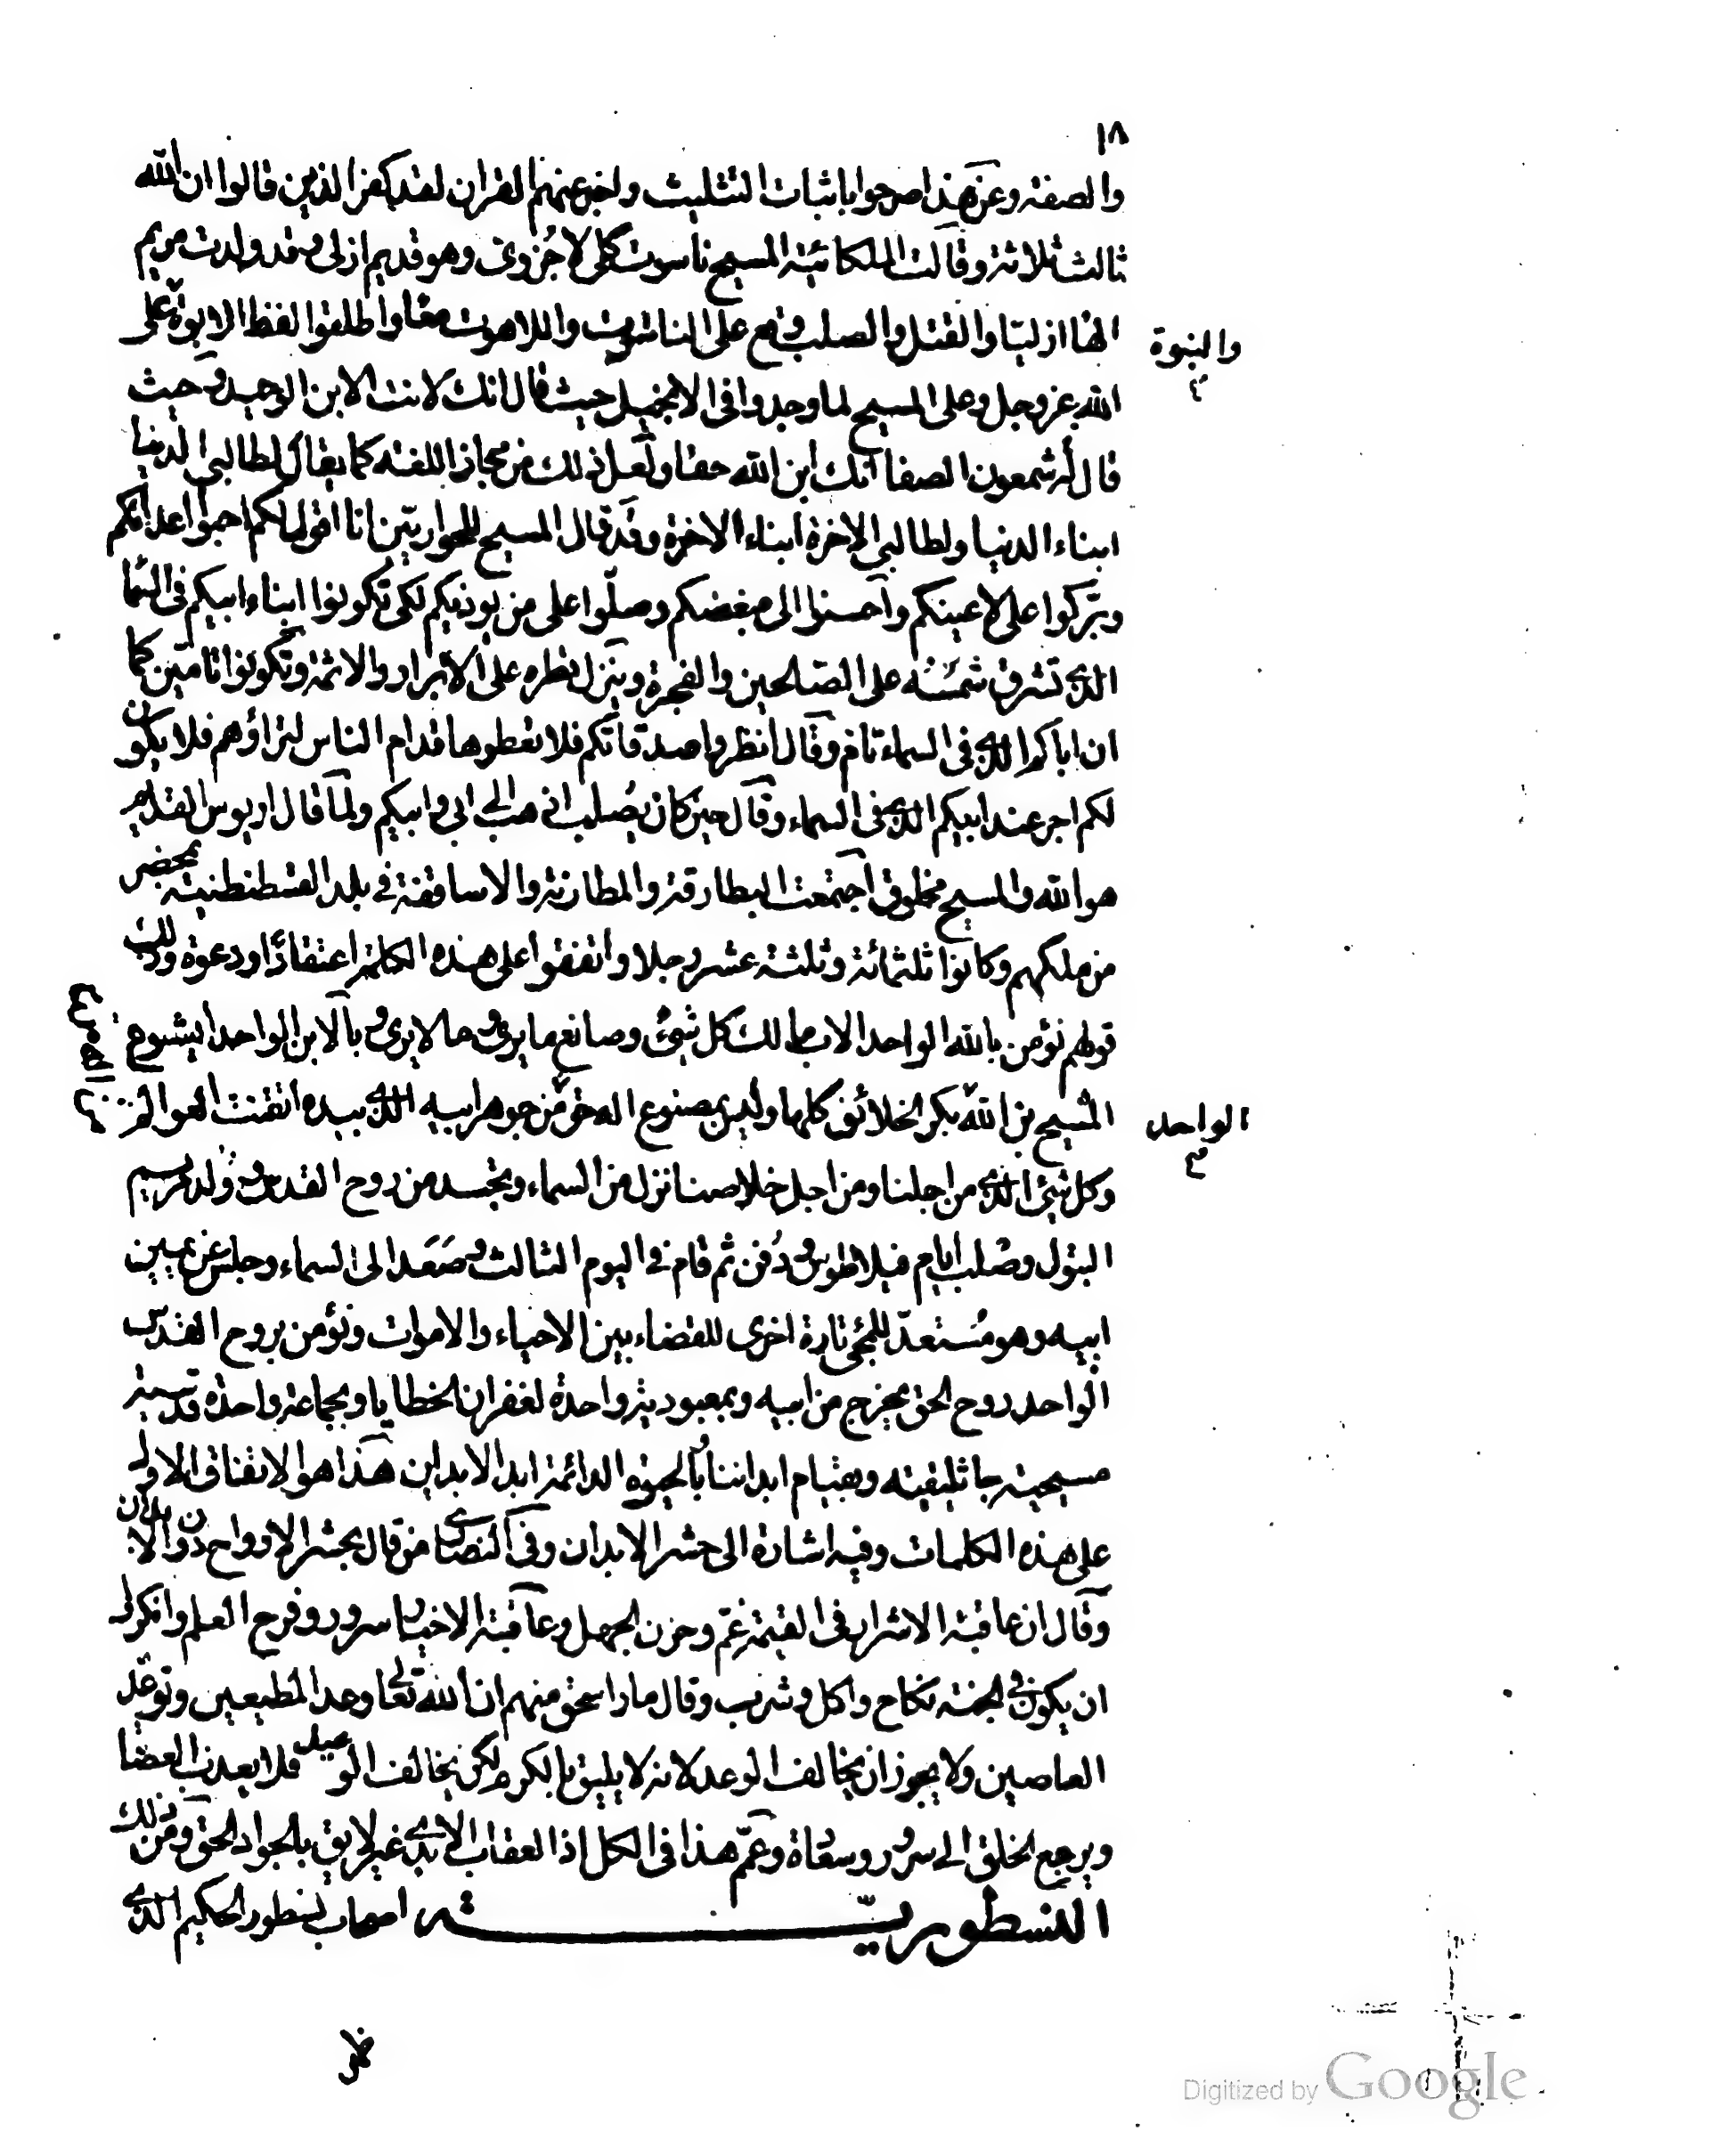 ١٨
والصفة وعن هذا صرحوا باثبات التثليث واخبر عنهم القران لقد كفر الذين قالوا ان الله
ثالث ثلاثة وقالت الملكائية المسيح ناسوت كلى لا جزوى وهو قديم ازلى وقد ولدت مريم
الها ازليا والقتل والصلب وقع على الناسوت واللاهوت معا واطلقوا لفظ الابوة على
والبنوة
الله عز وجل وعلى المسيح لما وجدوا فى الانجيل حيث قال انك لانت الابن الوحيد وحيث
قال له شمعون الصفا انك ابن الله حقا ولعل ذلك من مجاز اللغة كما يقال لطالبى الدنيا
ابناء الدنيا ولطالبى الاخرة ابناء الاخرة وقد قال المسيح للحواريين انا اقول لكم احبوا اعدائكم
وبركوا على لاعينكم واحسنوا الى مبغضكم وصلوا على من يوذيكم لكى تكونوا ابناء ابيكم فى السما
الذى تشرق شمسه على الصالحين والفجرة وينزل قطره على الابرار والاثمة وتكونوا تامين كما
ان اباكم الذى فى السماء تام وقال انظروا صدقاتكم فلا تعطوها قدام الناس لتراؤهم فلا يكون
لكم اجر عند ابيكم الذى فى السماء وقال حين كان يصلب اذهب الى ابى وابيكم ولما قال اريوس القديم
هو الله والمسيح مخلوق اجتمعت البطارقة والمطارنة والاساقفة فى بلد القسطنطنية بمحضر
من ملكهم وكانوا ثلثمائة وثلثة عشر رجلا واتفقوا على هذه الكلمة اعتقادا ودعوة وذلك
قولهم نؤمن بالله الواحد الاب مالك كل شىء وصانع ما يرى وما لا يرى وبالابن الواحد ايشوع
المسيح بن الله بكر الخلائق كلها وليس بمصنوع اله حق من جوهر ابيه الذى بيده اتقنت العوالم
الواحد
وكل شىء الذى من اجلنا ومن اجل خلاصنا نزل من السماء وتجسد من روح القدس وولد من مريم
البتول وصلب ايام فيلاطوس ودفن ثم قام فى اليوم الثالث وصعد الى السماء وجلس عن يمين
ابيه وهو مستعد للمجئ تارة اخرى للقضاء بين الاحياء والاموات ونؤمن بروح القدس
الواحد روح الحق يخرج من ابيه وبمعبودية واحدة لغفران الخطايا وبجماعة واحدة قدسية
مسيحية جاثليقية وبقيام ابداننا بالحيوة الدائمة ابد الابدين هذا هو الاتفاق الاول
على هذه الكلمات وفيه اشارة الى حشر الابدان وفى النصارى من قال بحشر الارواح دون الابدان
وقال ان عاقبة الاشرار فى القيمة غم وحزن الجهل وعاقبة الاخيار سرور وفرح العلم وانكروا
ان يكون فى الجنة نكاح واكل وشرب وقال مار اسحق منهم ان الله تعالى وعد المطيعين وتوعد
العاصين ولا يجوز ان يخالف الوعد لانه لا يليق بالكرم لكن يخالف الوعيد فلا يعذب العصا
ويرجع الخلق الى سرور وسعادة وعم هذا فى الكل اذ العقاب الابدى غير لايق بالجواد الحق ومن ذلك
النسطورية اصحاب نسطور الحكيم الذى
Digitized by Google